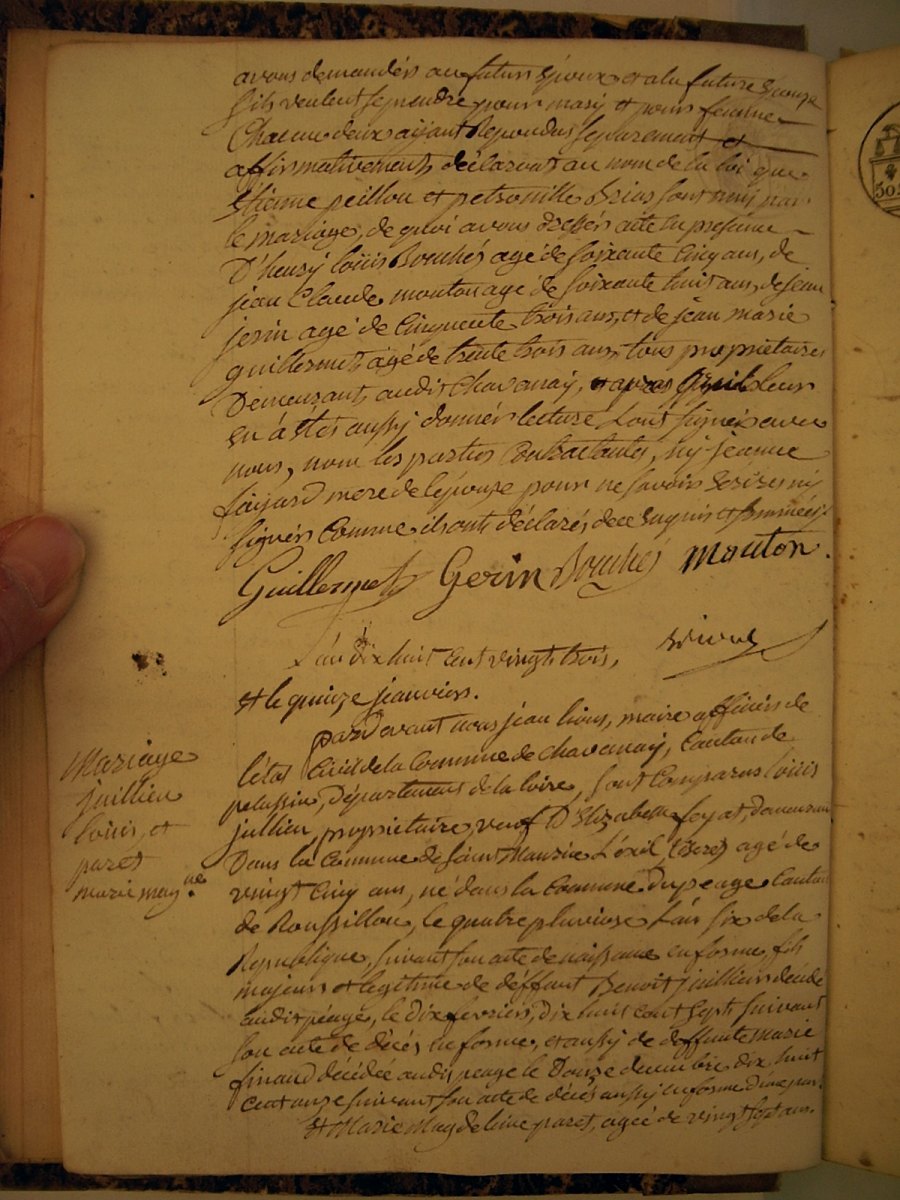 avons demandés au futur époux et a la future épouse
s'ils veulent se prendre pour mary et pour femme
Chacun d'eux ayant Repondus separement et
affirmativement, déclarons au nom de la loi que
Etienne peillou et petronille Brias sont unis par
le mariage, de quoi avons dressés acte en présence
D'henry loüis Bouchés agé de soixante Cinq ans, de
jean Claude mouton agé de soixante huit ans, de jean
jerin agé de Cinquente trois ans, et de jean marie
guillermet agé de trente trois ans, tous propriétaires
Demeurant audit Chavanay, et apres qu'il leur
en à étés aussy donnés lecture, sont signés avec
nous, nom les parties Contractantes, ny jeanne
fayard mere de l'épouze pour ne savoir ecrire ny
signés Comme ils ont déclarés, de ce enquis et sommés
Guillermet Gerin Bouchés Mouton.
L'an dix huit Cent vingt trois,
et le quinze jeanvier.
pardevant nous jean lions, maire officier de
l'état Civil de la Commune de Chavanay, Canton de
pelussin, Département de la loire, sont Comparus loüis
jullien, propriétaire, veuf D'Elizabette foyat, demeurant
Dans la Commune de saint Maurice L'exil (Isere) agé de
vingt Cinq ans, né dans la Commune du peage Canton
de Roussillon, le quatre pluviose L'an six de la
Republique, suivant son acte de naissance en forme, fils
majeur et legitime de déffunt Benoit juillien décédé
audit péage, le dix fevrier, dix huit cent sept suivant
son acte de décés en forme, et aussy de deffunte marie
finaud décédée audit peage le Douze decembre dix huit
Cent onze suivant son acte de décés aussy en forme d'une part
Et Marie Magdeleine paret, agée de vingt sept ans
Mariage
juillien
loüis, et
paret
marie magne.